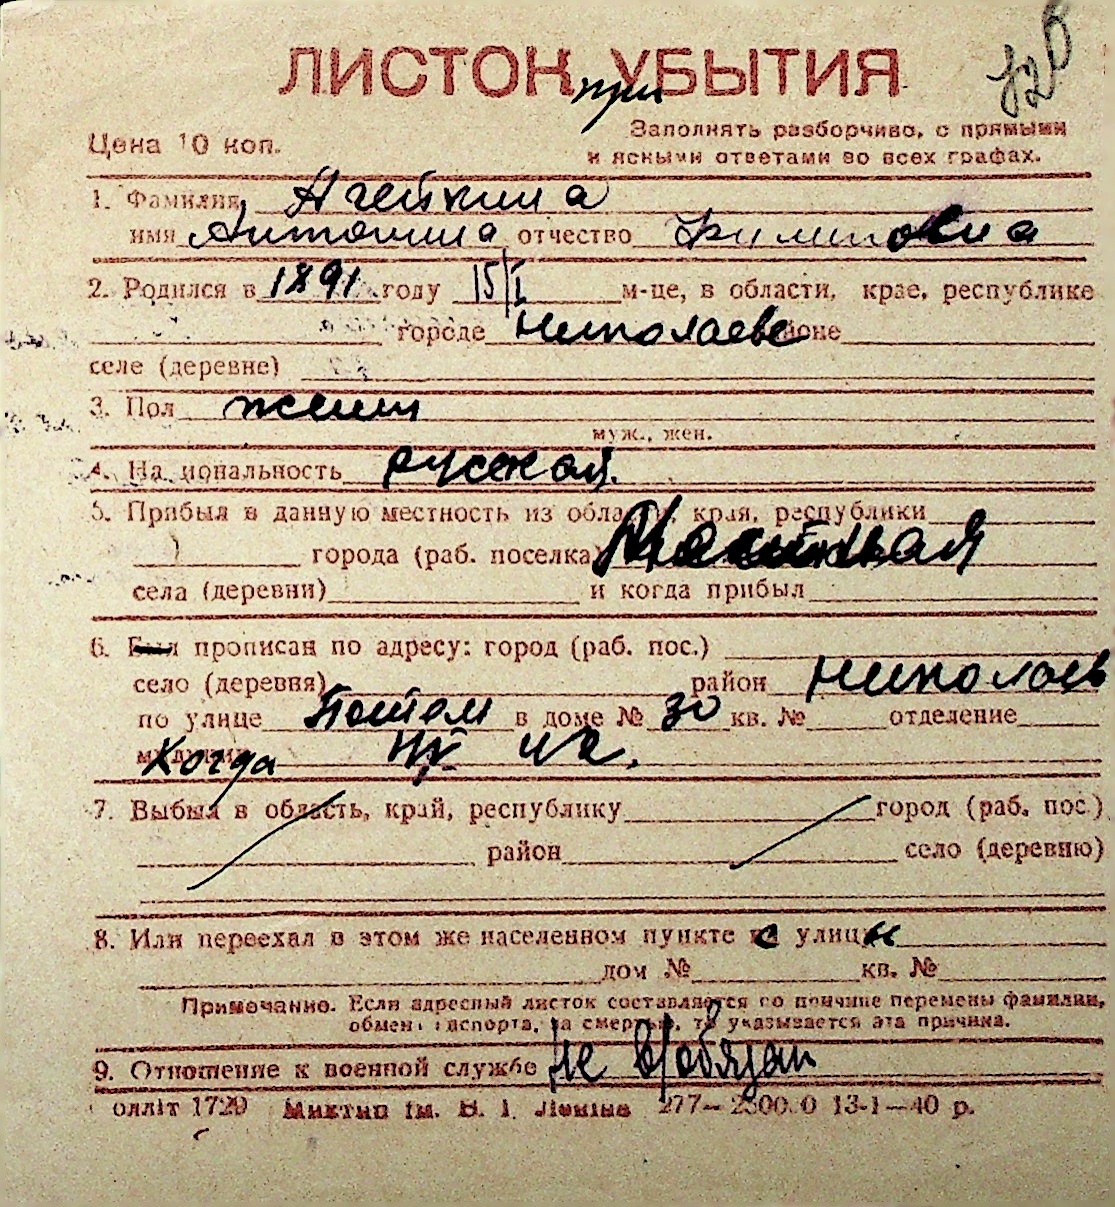 ЛИСТОК при УБЫТИЯ
Цена 10 коп.
Заполнять разборчиво, с прямыми
и ясными ответами во всех графах.
1. Фамилия Агейкина
имя Антонина отчество Филиповна
2. Родился в 1891 году 15/I м-це, в области, крае, республике
городе Николаеве районе
селе (деревне)
3. Пол женщ
муж., жен.
4. Национальность русская.
5. Прибыл в данную местность из области, края, республики
города (раб. поселка) Местная
села (деревни) и когда прибыл
6. Был прописан по адресу: город (раб. пос.)
село (деревня) район Николаев
по улице в доме № 30 кв. № отделение
милиции Когда
7. Выбыл в область, край, республику город (раб. пос.)
район село (деревню)
8. Или переехал в этом же населенном пункте с улицы
дом № кв. №
Примечание. Если адресный листок составляется по причине перемены фамилии,
обмена паспорта, за смертью, то указывается эта причина.
9. Отношение к военной службе не в/обязан
1720 ім. В. І. Леніна 277— 13-1—40 р.